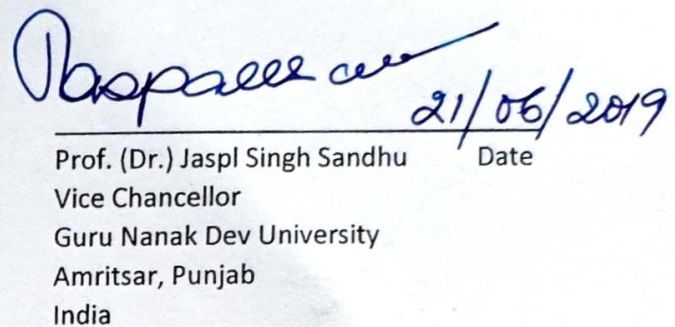 21/06/2019
Prof. (Dr.) Jaspl Singh Sandhu Date
Vice Chancellor
Guru Nanak Dev University
Amritsar, Punjab
India